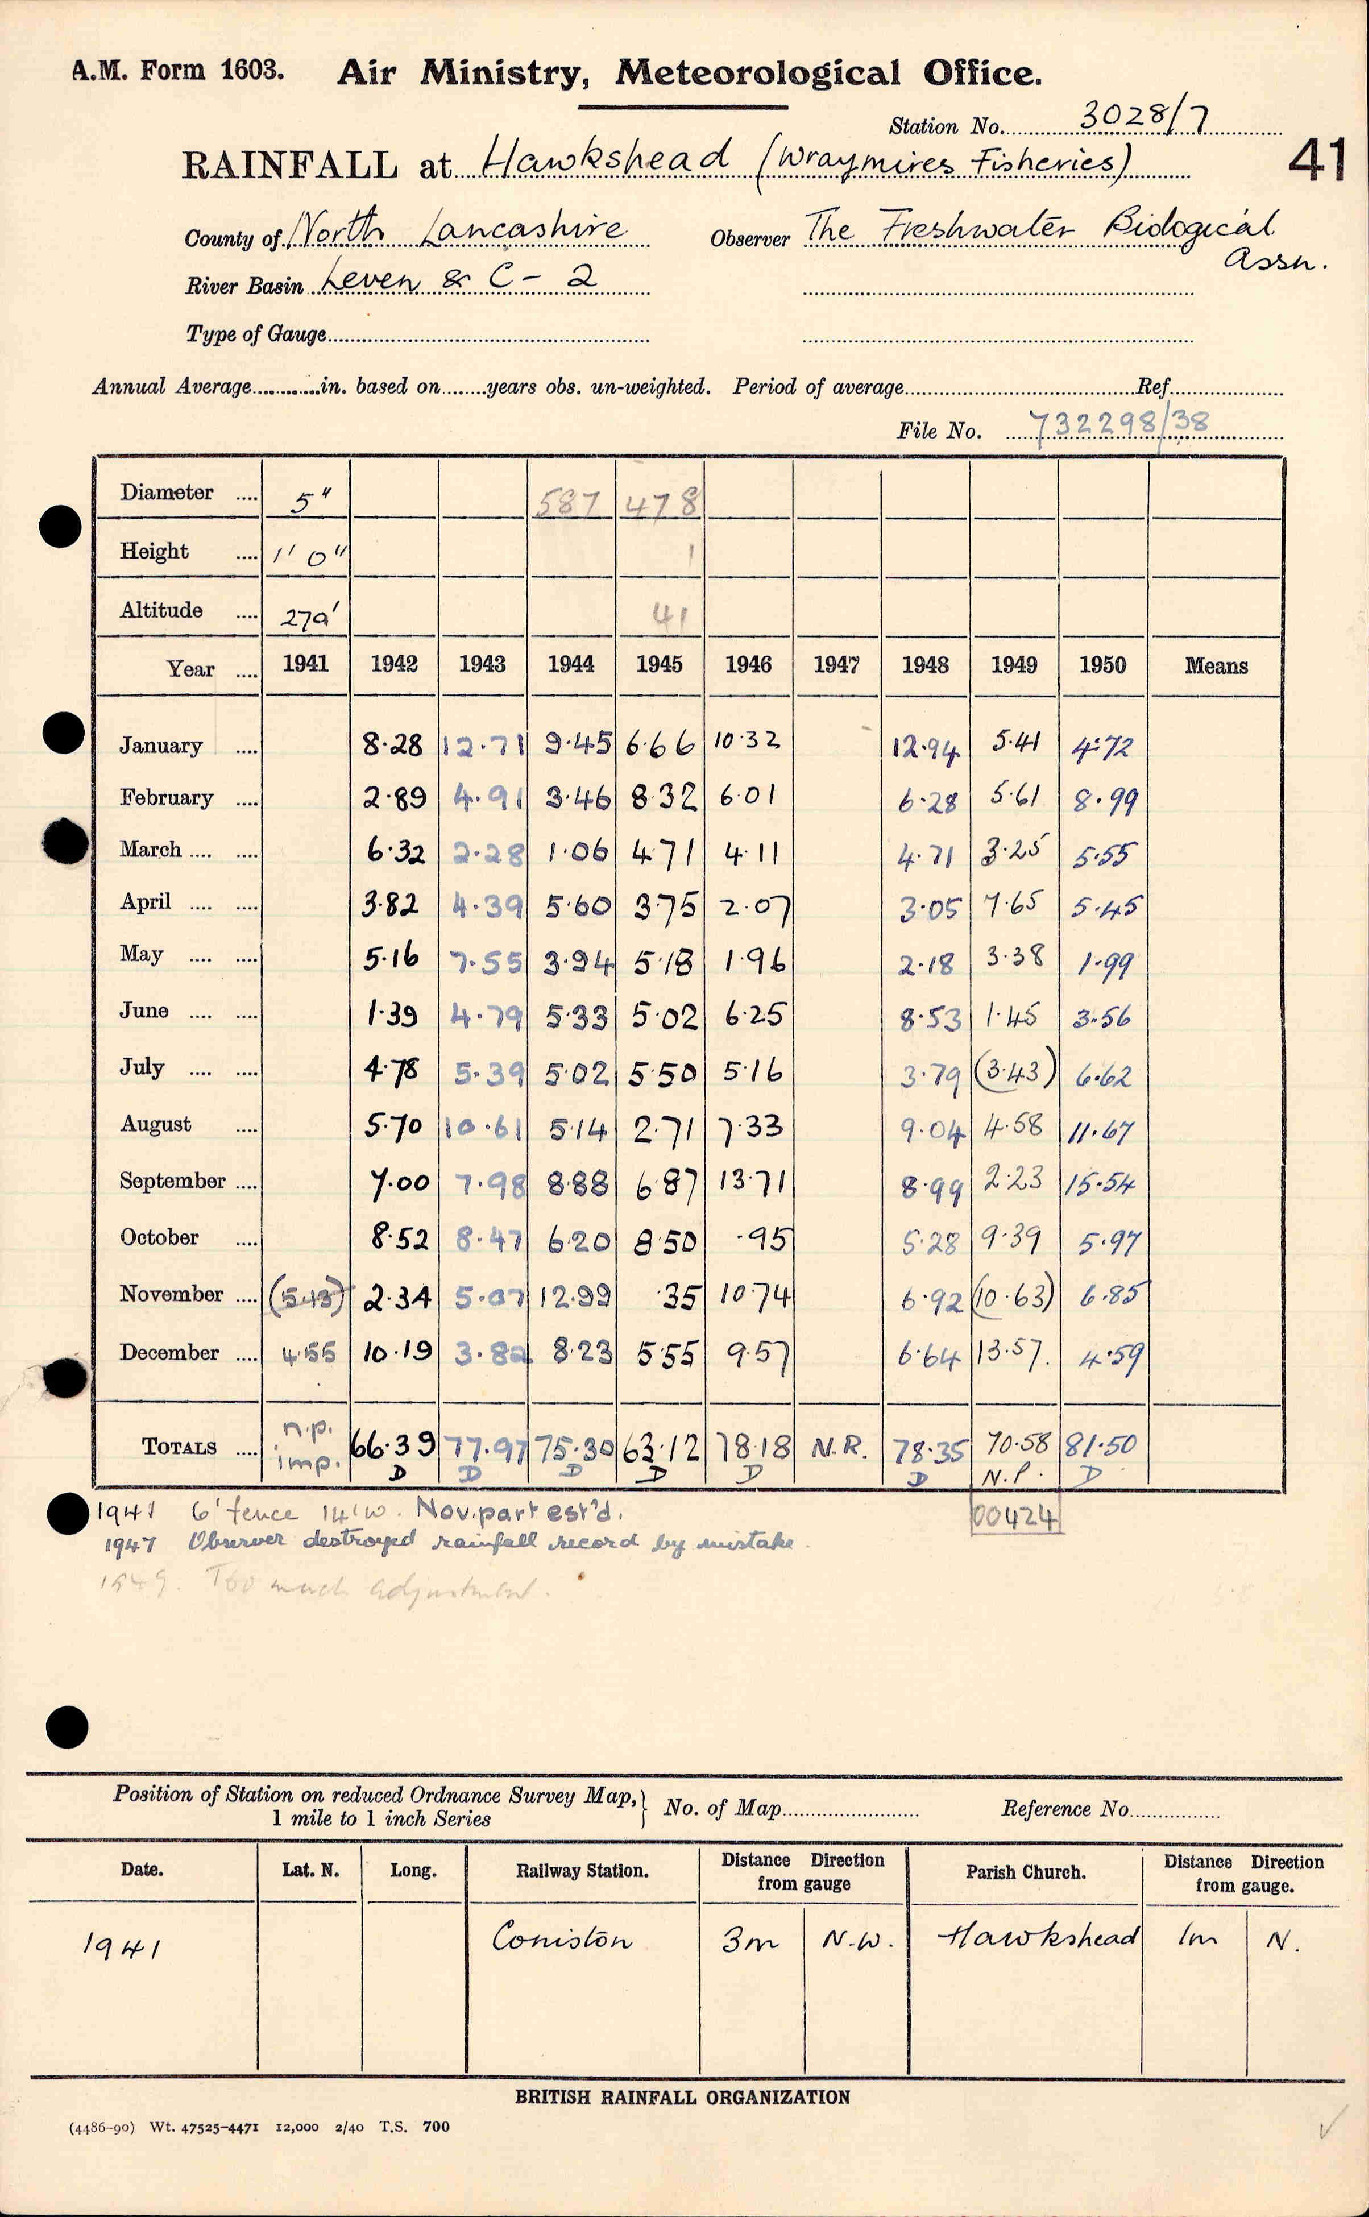 A.M. Form 1603. Air Ministry, Meteorological Office.
Station No. 3028/7
RAINFALL at Hawkshead (Wraymires Fisheries) 41
County of North Lancashire Observer The Freshwater Biological Assn.
River Basin Leven & C - 2
Type of Gauge
Annual Average in. based on years obs. un-weighted. Period of average Ref.
File No. 732298/38
Diameter 5" 587 478
Height 1' 0" 1
Altitude 279' 41
Year 1941 1942 1943 1944 1945 1946 1947 1948 1949 1950 Means
January 8.28 12.71 9.45 6.66 10.32 12.94 5.41 4.72
February 2.89 4.91 3.46 8.32 6.01 6.28 5.61 8.99
March 6.32 2.28 1.06 4.71 4.11 4.71 3.25 5.55
April 3.82 4.39 5.60 3.75 2.07 3.05 7.65 5.45
May 5.16 7.55 3.94 5.18 1.96 2.18 3.38 1.99
June 1.39 4.79 5.33 5.02 6.25 8.53 1.45 3.56
July 4.78 5.39 5.02 5.50 5.16 3.79 (3.43) 6.62
August 5.70 10.61 5.14 2.71 7.33 9.04 4.58 11.67
September 7.00 7.98 8.88 6.87 13.71 8.99 2.23 15.54
October 8.52 8.47 6.20 8.50 .95 5.28 9.39 5.97
November (5.43) 2.34 5.07 12.99 .35 10.74 6.92 (10.63) 6.85
December 4.55 10.19 3.82 8.23 5.55 9.57 6.64 13.57 4.59
TOTALS n.p. imp. 66.39 77.97 75.30 63.12 78.18 N.R. 78.35 70.58 81.50
D D D D D D N.P. D
1941 6' fence 14' W. Nov. part est'd. 00424
1947 Observer destroyed rainfall record by mistake.
1949. Too much adjustment.
Position of Station on reduced Ordnance Survey Map, 1 mile to 1 inch Series } No. of Map Reference No.
Date. Lat. N. Long. Railway Station. Distance Direction from gauge Parish Church. Distance Direction from gauge.
1941 Coniston 3m N.W. Hawkshead 1m N.
BRITISH RAINFALL ORGANIZATION
(4486-90) Wt. 47525-4471 12,000 2/40 T.S. 700